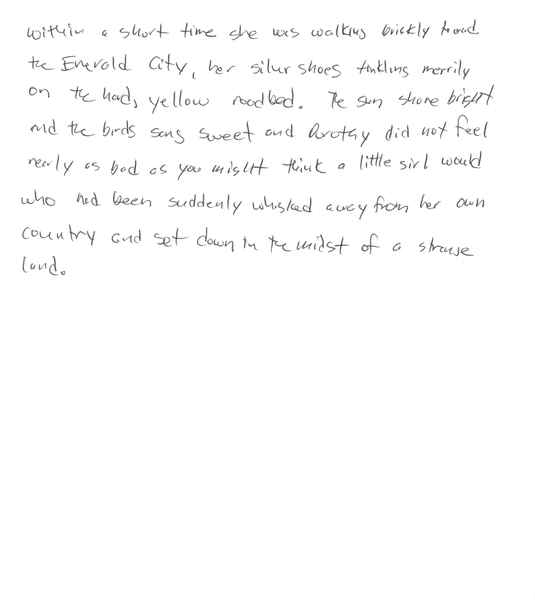 within a short time she was walking brickly toward
the Emerald City, her silver shoes tinkling merrily
on the hard, yellow roadbed. The sun shone bright
and the birds sang sweet and Dorothy did not feel
nearly as bad as you might think a little girl would
who had been suddenly whisked away from her own
country and set down in the midst of a strange
land.